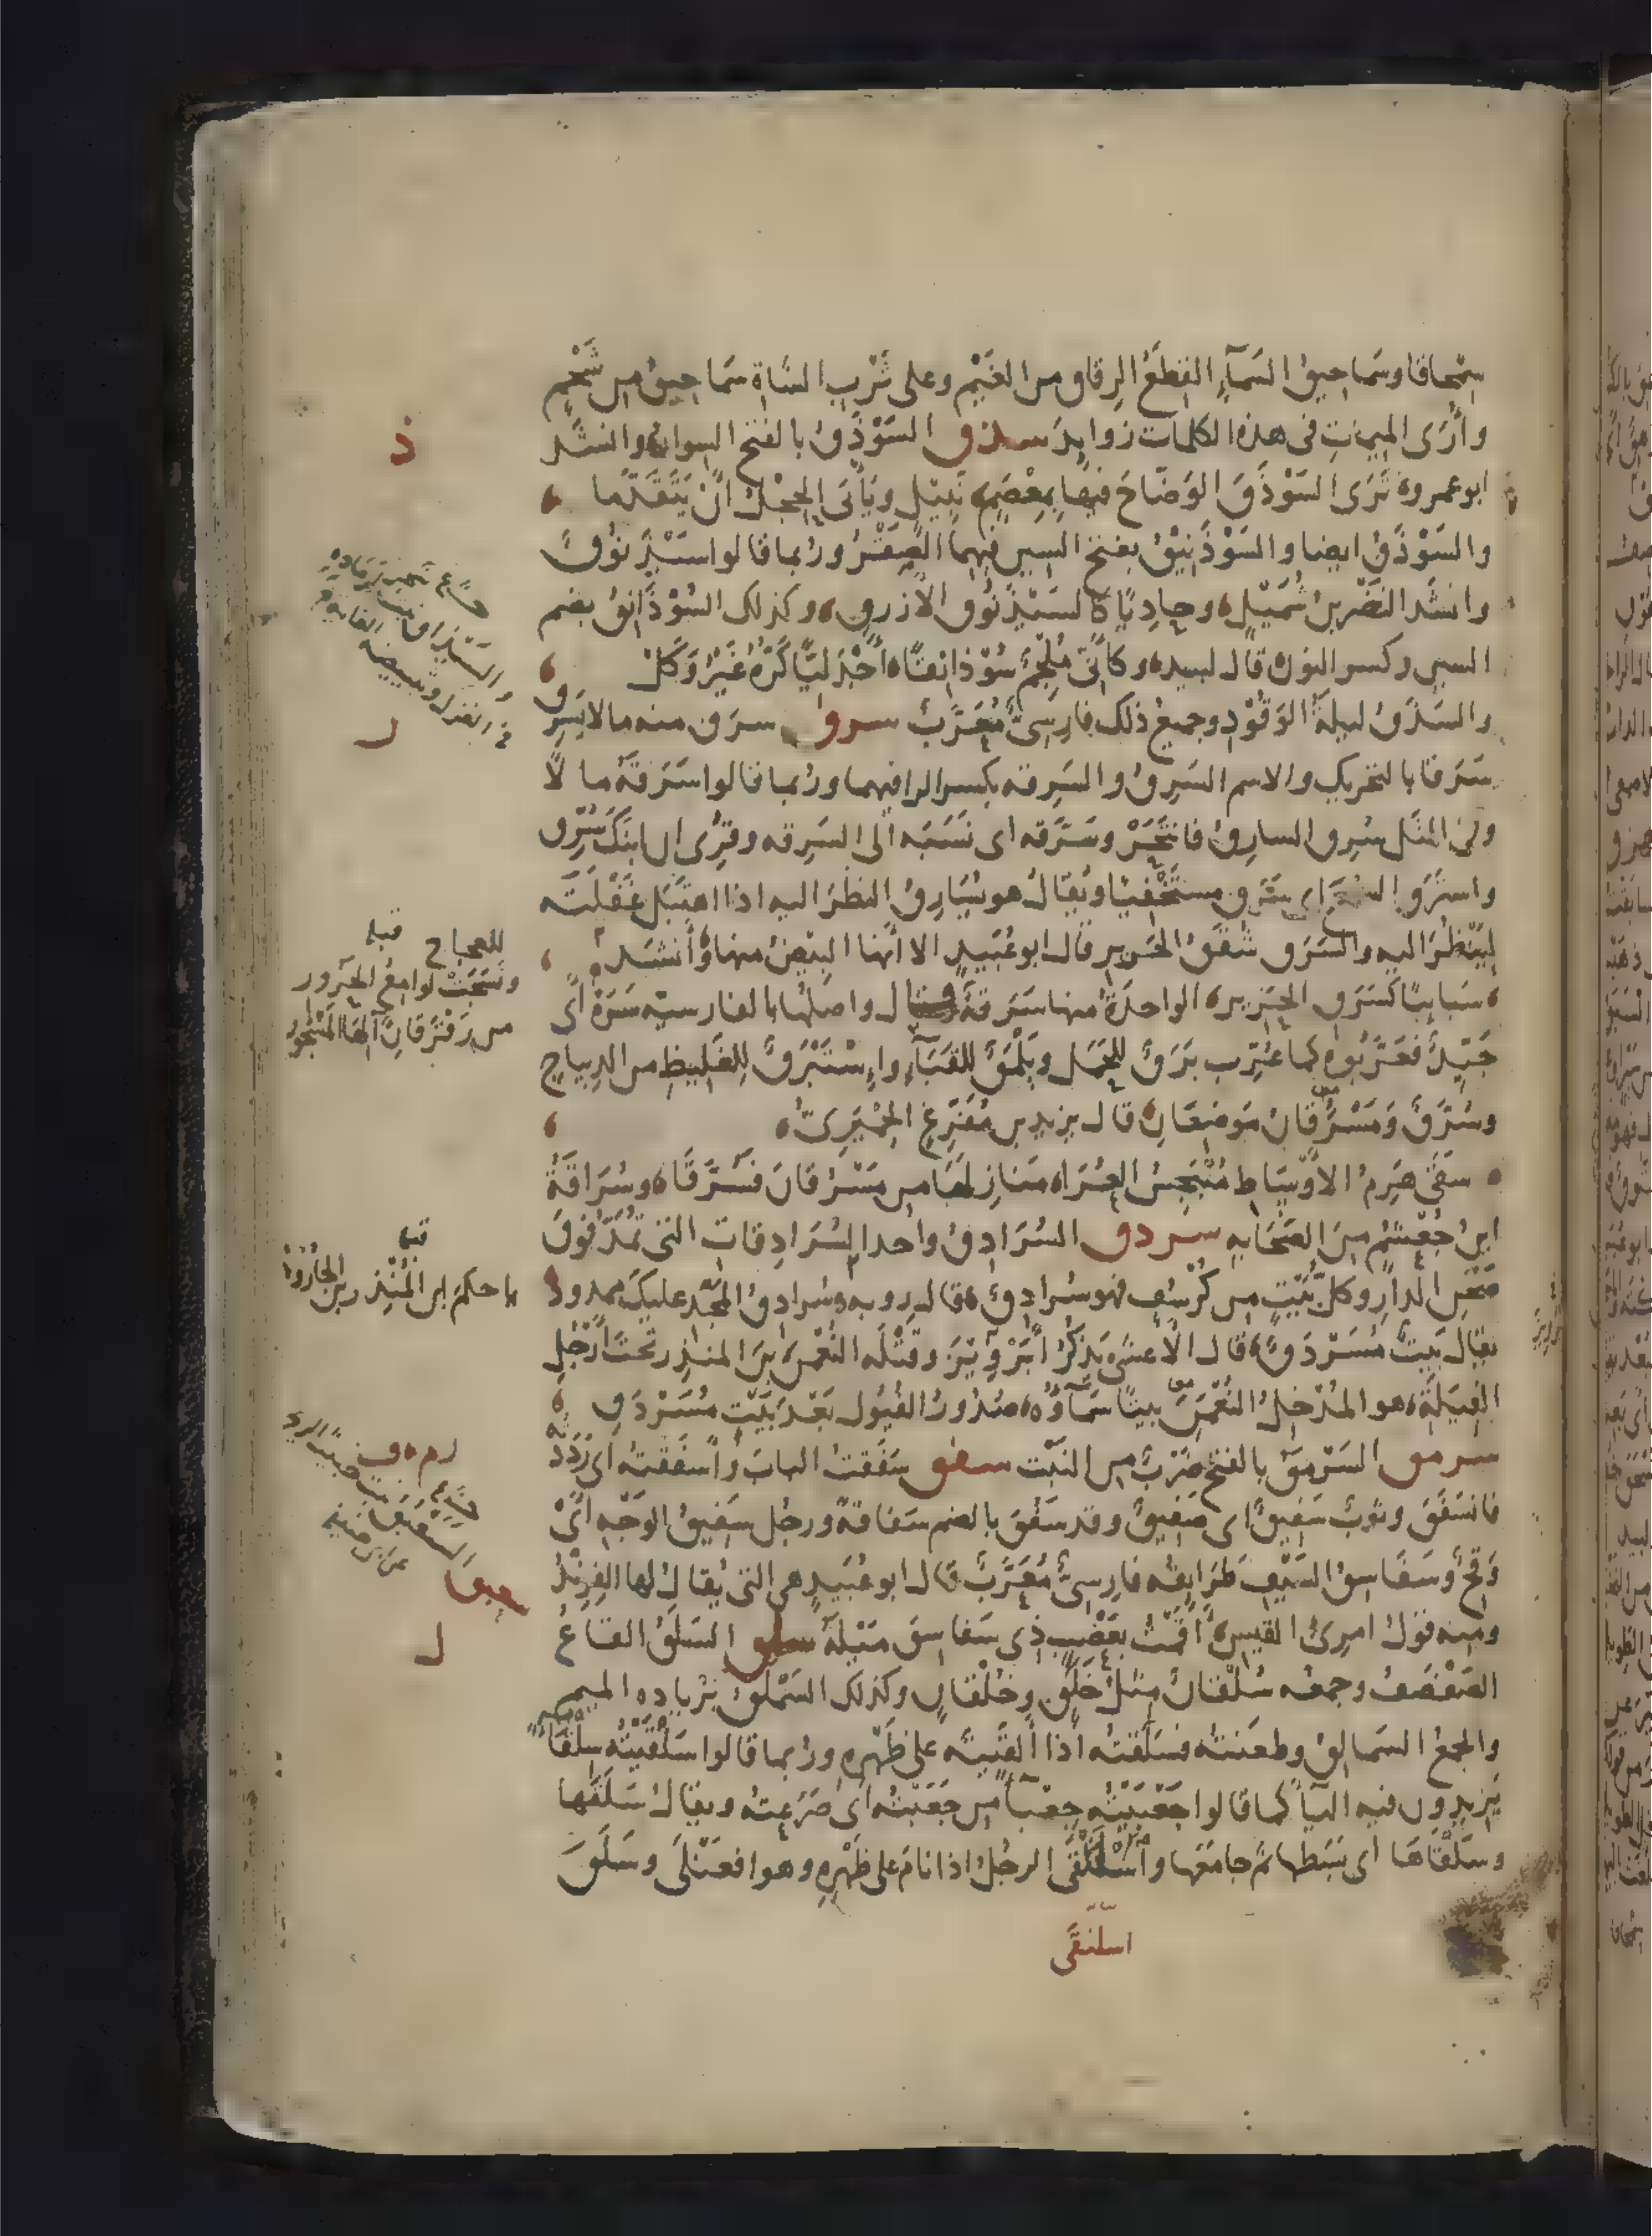 سِمْحاقا وسَماحيقُ السَمآءِ القِطَعُ الرِقاق من الغَيْم وعلى ثَرْبِ الشاةِ سَماحِيقُ من شَحْمٍ
وأُرَى الميماتِ فى هذه الكلمات زوايدَ سذق السَوْذَقُ بالفتح السِوارُ وانشد
ابو عمرو تَرَى السَوْذَقَ الوَضّاحَ فيها بِمعْصَمٍ نَبيل ويَأْبَى الحِجْلُ أنْ يَتَقَدّما
والسَوْذَقُ ايضا والسَوْذَنِيقُ بفتح السين فيهما الصَقْرُ وربما قالوا سَيْذَنُوقٌ
وانشد النَضْر بن شُمَيْلٍ وحادِيًا كالسَيْذَنُوق الأزرقِ وكذلك السُوْذَانِقُ بضم
السين وكسر النون قال لبيد وكأنّى مُلْجِمٌ سُوْذانِقًا أَجْدَلِيًّا كَرُّهُ غَيْرُ وَكَلْ
والسَذَقُ ليلةُ الوَقُوْدِ وجميعُ ذلك فارِسىٌّ مُعَرَّبٌ سرق سرَق منه مالا يَسرِق
سَرَقا بالتحريك والاسم السَرِقُ والسَرِقه بكسر الرا فيهما وربما قالوا سَرَقَهُ مالًا
وفى المثَل سُرِق السارِقُ فانتَحَرْ وسَرَّقه اى نَسَبَه الى السَرِقه وقُرِئ ان ابنَكَ سُرِّق
واستَرَق السمعَ اى سَرَق مستَخْفِيًا ويُقالُ هو يُسارِقُ النظرَ اليه اذا اهتَبَل غَفْلَتَه
لِيَنْظُرَ اليه والسَرَق شُقَقُ الحَرير قال ابو عُبَيدٍ الا أنها البيْضُ منها وأَنشَد
سَبايبًا كسَرَقِ الحَرير الواحدةُ منها سَرَقةٌ قال واصلُها بالفارسيّه سَرَهْ أَى
جَيّدٌ فعَرَّبُوه كما عُرّب بَرَقٌ للحَمَل ويَلْمَقٌ للقَبَآءِ وإِسْتَبْرَقٌ لِلغَليظِ من الدِيباج
وسُرَّقٌ ومَسْرُقانُ مَوضِعَانِ قال يزيد بن مُفَرِّغٍ الحِمْيَرِىُّ
سَقَى هَزِمُ الاَوْسَاطِ مُنْبَجِسُ العُرَا مَنازِلَها من مَسْرُقانَ فسُرَّقَا وسُرَاقَةُ
ابنُ جُعْشُمٍ مِنَ الصَحَابه سردق السُرَادِقُ واحد السُرَادِقات التى تُمَدُّ فوقَ
صَحْنِ الدارِ وكلُّ بَيْتٍ من كُرْسُفٍ فهو سُرادِقٌ قال رؤبه سُرادقُ المَجْد عليكَ ممدودْ
يقال بَيتٌ مُسَرْدَقٌ قال الأعشى يَذكُرُ أَبْرَوِيْزَ وقَتْلَه النُعْمنَ بنَ المنذر تحتَ أرْجُل
الفِيَلَةِ هو المُدْخِلُ النُعْمنَ بيتًا سَمآؤُه صُدُورُ الفُيُول بَعْدَ بَيْتٍ مُسَرْدَقِ
سرمق السَرْمَقُ بالفتح ضَرْبٌ من النَبْت سفق سَفَقْتُ البابَ وأسفَقْتُه اى رَدَدْتُه
فانسَفَقَ وثوبٌ سَفيقٌ اى صَفيقٌ وقد سَفُقَ بالضم سَفاقةً ورجُل سَفيقُ الوَجْهِ اىْ
وَقِحٌ وسَفاسِقُ السَيْفِ طَرَايِقُه فارِسىٌّ مُعَرَّبٌ قال ابو عُبَيدٍ هى التى يُقالُ لها الفِرِنْدُ
ومنه قولُ امرئ القيس أَقَمْتُ بعَضْبٍ ذى سَفاسِقَ مَيْلَهُ سلق السَلَقُ القاعُ
الصَفْصَفُ وجمعُه سُلْقانٌ مثلُ خَلَقٍ وخُلْقانٍ وكذلك السَمْلَقُ بزياده الميم
والجمعُ السَمالِقُ وطعَنتُه فسَلَقتُه اذا أَلقَيتَه على ظَهْرِه وربما قالوا سَلْقَيْتُه سِلْقَاءً
يَزيدون فيه اليآ كما قالوا جَعْبَيْتُه جِعْبآءً من جَعَبْتُه اى صَرَعتُه ويقالُ سَلَقَها
وسَلْقَاها اى بَسَطها ثم جامَعَها واسْلَنْقَى الرجُلُ اذا نامَ على ظَهْرِه وهو افعَنْلَى وسَلَقَ
اسلنقَى
ذ
والسَيْذاق نبت
فى الغزل
ل
للعجاج قبله
ونَسَجَتْ لوامعُ الحَرور
من رَقْرَقانِ آلِها المَسْجُور
قبله
يا حكمَ ابن المُنْذر بن الجارُودْ
ل